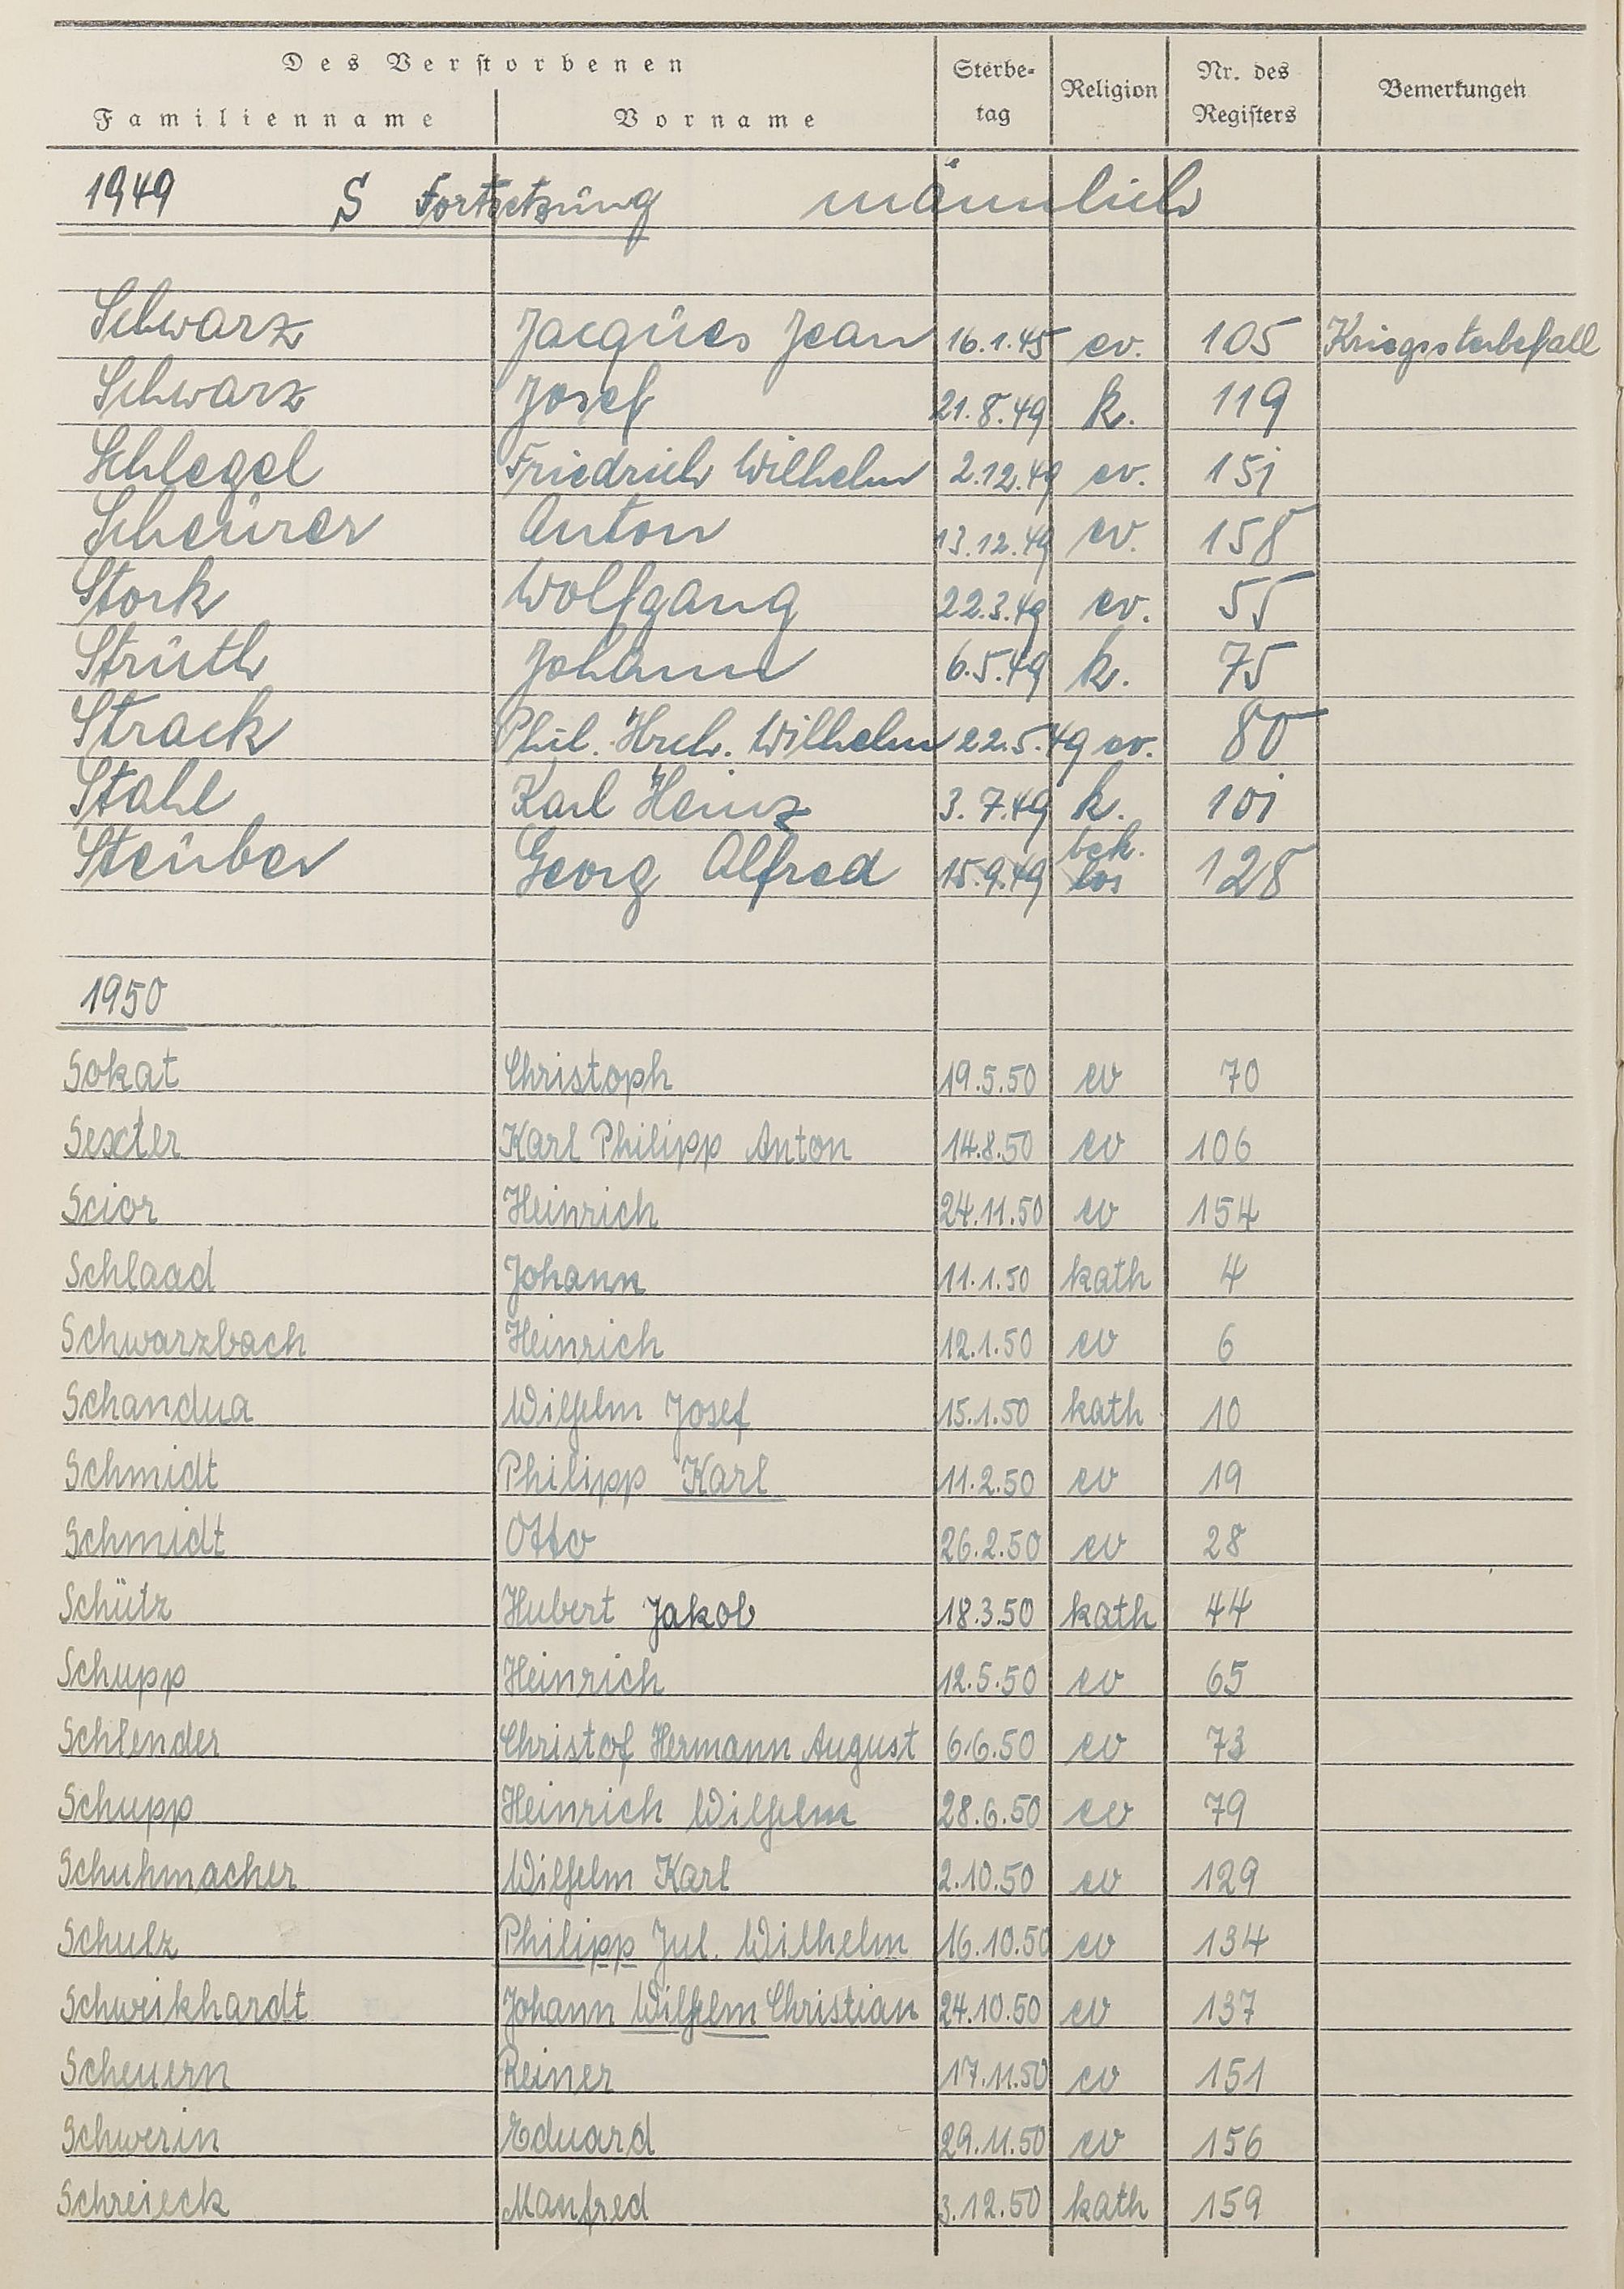 Des Verstorbenen
Familienname Vorname Sterbe-tag Religion Nr. des Registers Bemerkungen
1949 S Fortsetzung männlich
Schwarz Jacques Jean 16.1.45 ev. 105 Kriegssterbefall
Schwarz Josef 21.8.49 k. 119
Schlegel Friedrich Wilhelm 2.12.49 ev. 151
Scheurer Anton 13.12.49 ev. 158
Stork Wolfgang 22.3.49 ev. 55
Struth Johann 6.5.49 k. 75
Strack Phil. Hrch. Wilhelm 22.5.49 ev. 80
Stahl Karl Heinz 3.7.49 k. 101
Steuber Georg Alfred 15.9.49 bek. los 128
1950
Sokat Christoph 19.5.50 ev 70
Sexter Karl Philipp Anton 14.8.50 ev 106
Scior Heinrich 24.11.50 ev 154
Schlaad Johann 11.1.50 kath 4
Schwarzbach Heinrich 12.1.50 ev 6
Schandua Wilhelm Josef 15.1.50 kath 10
Schmidt Philipp Karl 11.2.50 ev 19
Schmidt Otto 26.2.50 ev 28
Schütz Hubert Jakob 18.3.50 kath 44
Schupp Heinrich 12.5.50 ev 65
Schlender Christof Hermann August 6.6.50 ev 73
Schupp Heinrich Wilhelm 28.6.50 ev 79
Schuhmacher Wilhelm Karl 2.10.50 ev 129
Schulz Philipp Jul. Wilhelm 16.10.50 ev 134
Schweikhardt Johann Wilhelm Christian 24.10.50 ev 137
Scheuern Reiner 17.11.50 ev 151
Schwerin Eduard 29.11.50 ev 156
Schreieck Manfred 3.12.50 kath 159